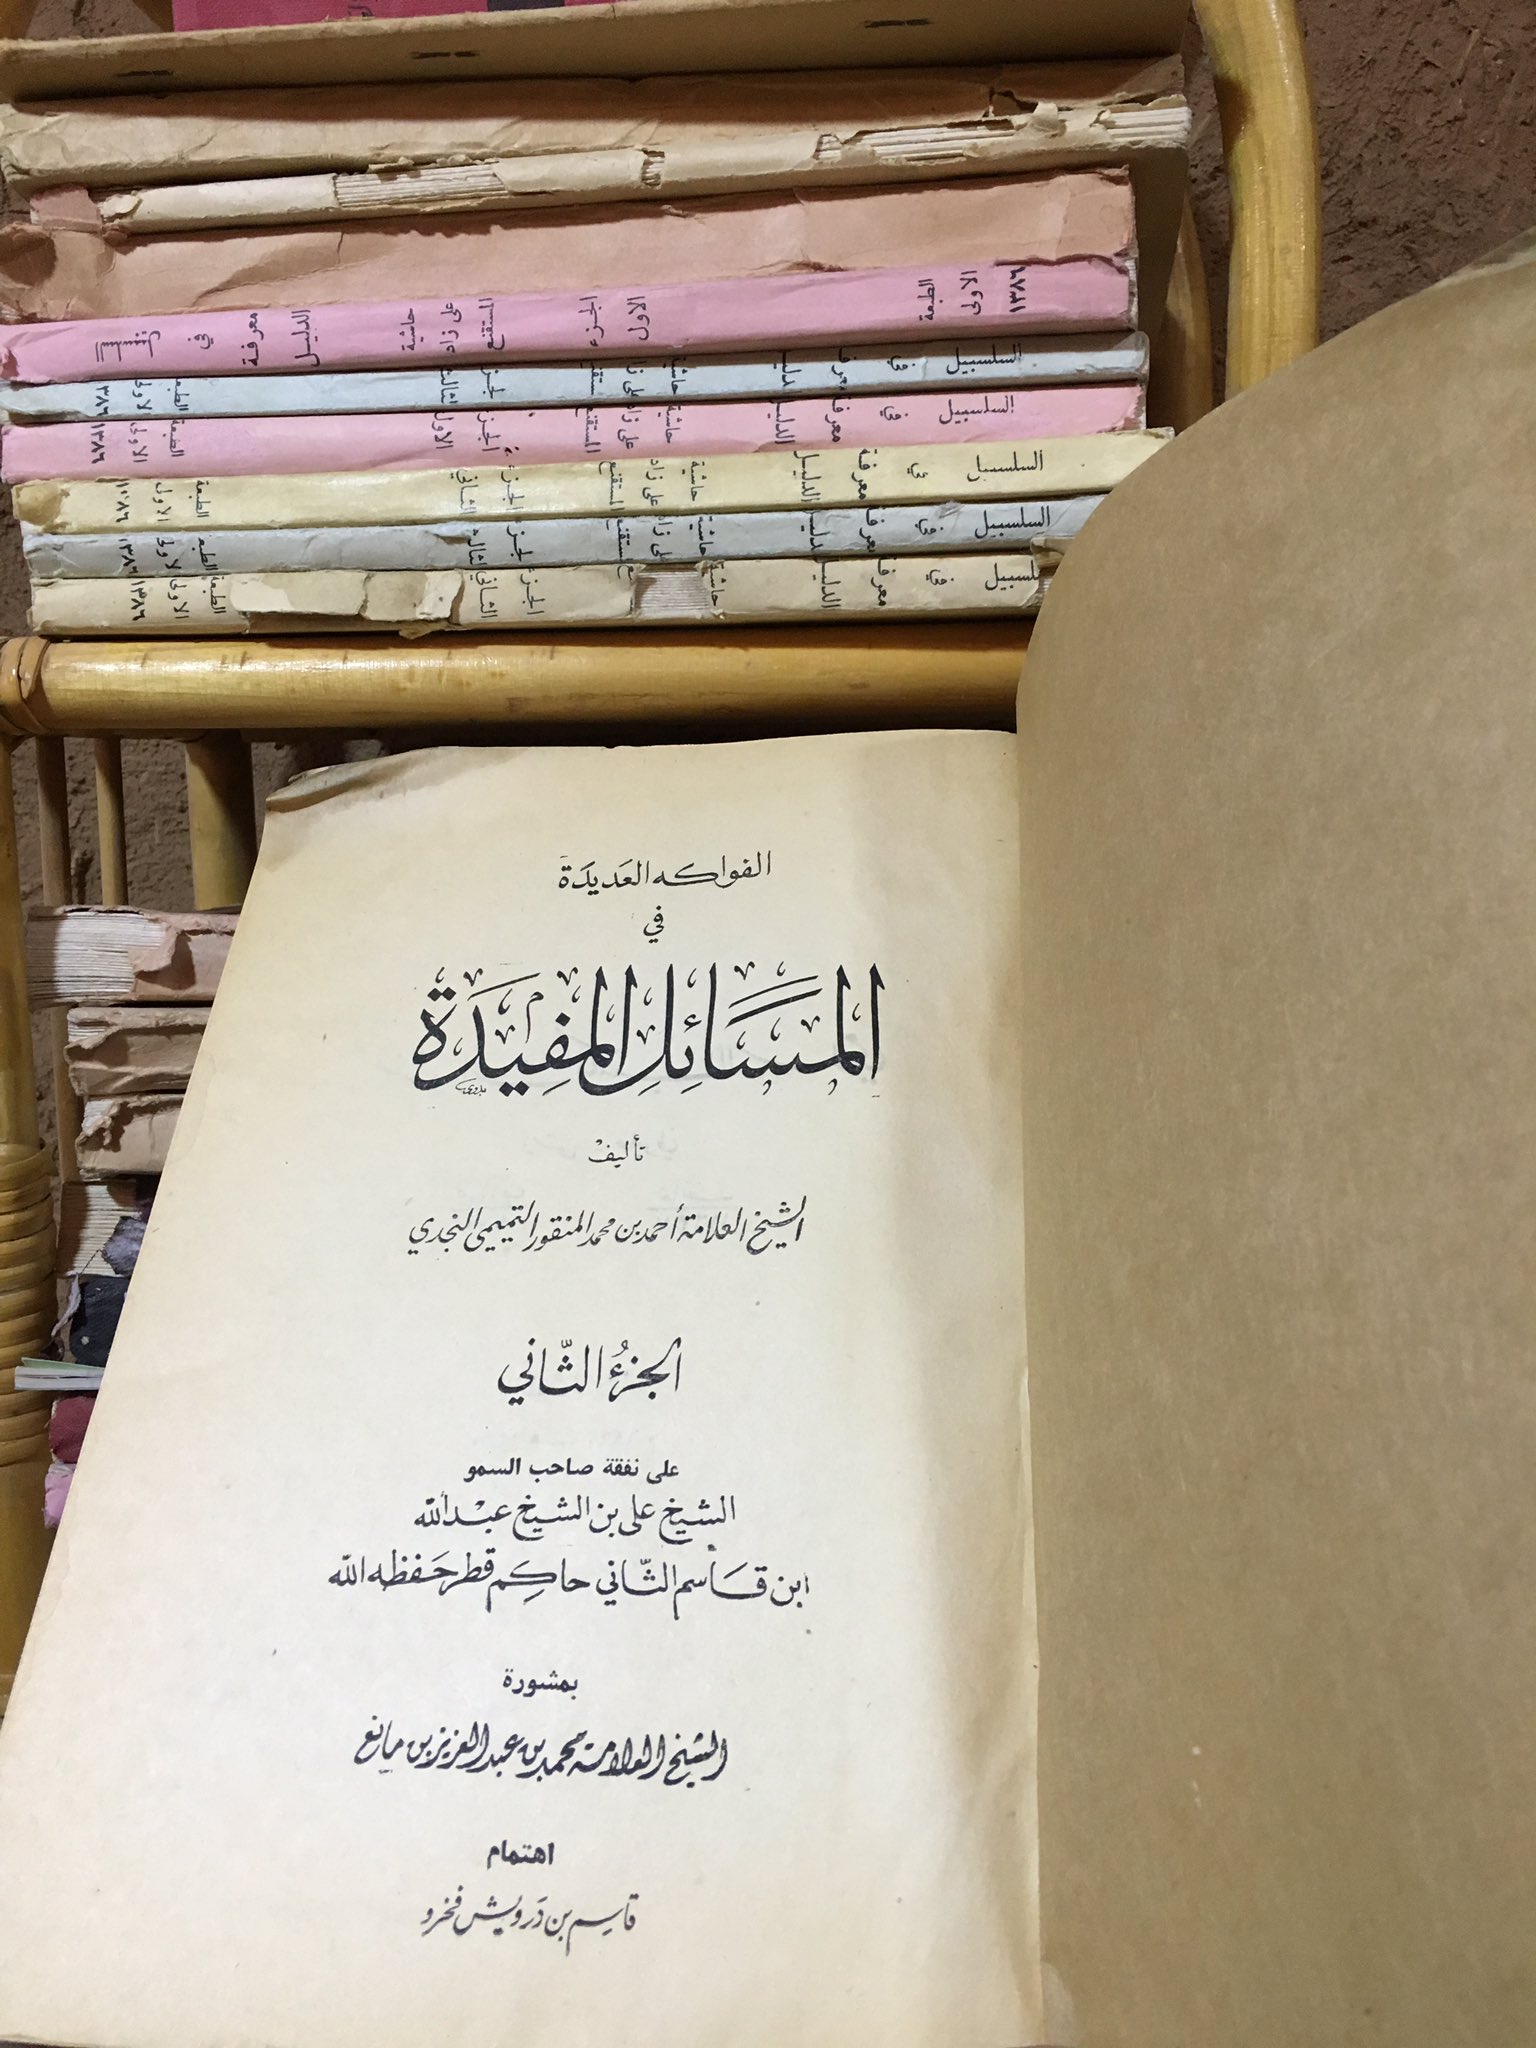 السلسبيل في معرفة الدليل حاشية على زاد المستقنع الجزء الاول الطبعة الاولى ١٣٨٦
السلسبيل في معرفة الدليل حاشية على زاد المستقنع الجزء الثالث الطبعة الاولى ١٣٨٦
السلسبيل في معرفة الدليل حاشية على زاد المستقنع الجزء الاول الطبعة الاولى ١٣٨٦
السلسبيل في معرفة الدليل حاشية على زاد المستقنع الجزء الثاني الطبعة الاولى ١٣٨٦
السلسبيل في معرفة الدليل حاشية على زاد المستقنع الجزء الثالث الطبعة الاولى ١٣٨٦
السلسبيل في معرفة الدليل حاشية الجزء الثاني الطبعة الاولى ١٣٨٦
الفواكه العَديدَة
في
المَسَائِلِ المفِيدَة
بدوي
تأليف
الشيخ العلامة أحمد بن محمد المنقور التميمي النجدي
الجزءُ الثّاني
على نفقة صاحب السمو
الشيخ علي بن الشيخ عبْد الله
ابن قاسم الثّاني حاكِم قطر حَفظه الله
بمشورة
الشيخ العلامة محمد بن عبد العزيز بن مانع
اهتمام
قاسِم بن دَرويش فخرو